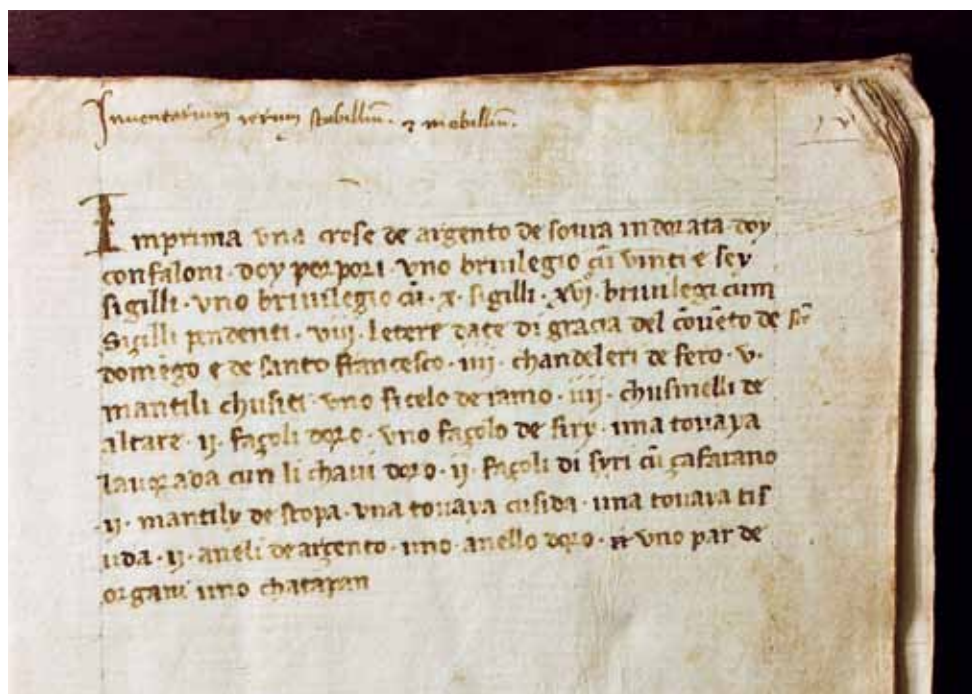 Inventarium rerum stabillium. & mobillium.
Imprima una crose de argento de soura indorata · doy
confaloni · doy perpori · uno briuilegio cū uinti e sey
sigilli · uno briuilegio cū · x · sigilli · xvi · briuilegi cum
sigilli pendenti · viii · letere date di gracia del cōuēto de
domēgo e de santo francesco · iiij · chandeleri de fero · v ·
mantili chusiti uno sicelo de ramo · iiij · chusinelli de
altare · ij · façoli doro · uno façolo de siry · una touaya
laurada cun li chaui doro · ij · façoli di syri cū çafarano
· ij · mantily de stopa · una touaya cusida · una touaya tis
uda · ij · aneli de argento · uno anello doro · uno par de
organi uno chatapan